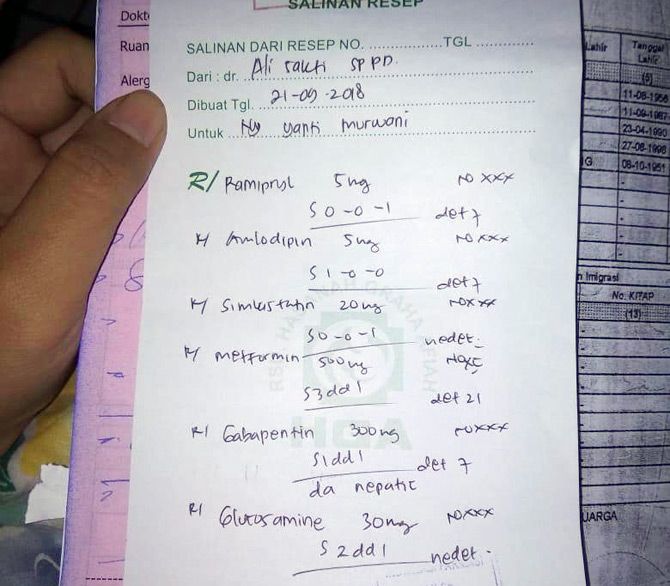 SALINAN RESEP
Dokt
Ruan
Alerg
SALINAN DARI RESEP NO. ............... TGL ............
Dari : dr. Ali sakti SP PD.
Dibuat Tgl. 21-09-2018
Untuk Ny yanti murwani
R/ Ramipryl 5mg NO XXX
S 0-0-1 det 7
R/ Amlodipin 5mg NO XXX
S 1-0-0 det 7
R/ Simvastatin 20mg NO XXX
S 0-0-1 nedet.
R/ metformin 500mg NO XC
S 3dd1 det 21
R/ Gabapentin 300mg NO XXX
S 1dd1 det 7
da nepatic
R/ Glucosamine 30mg NO XXX
S 2dd1 nedet.
HGA
Lahir
Tanggal
Lahir
(5)
11-08-1956
11-09-1987
23-04-1990
27-08-1996
G 08-10-1951
n Imigrasi
No. KITAP
(13)
UARGA